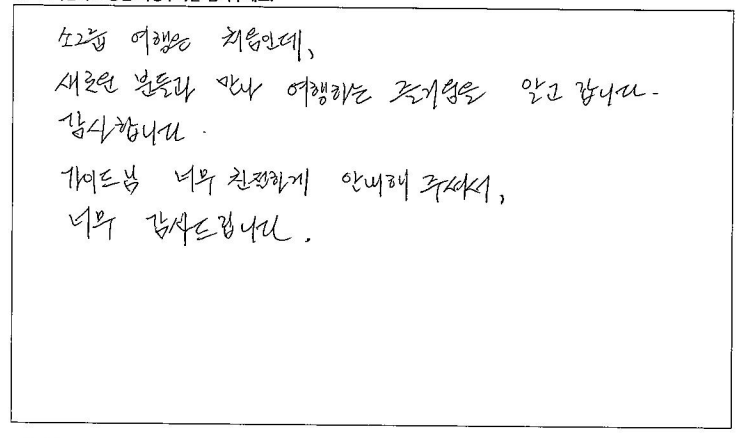 소그룹 여행은 처음인데,
새로운 분들과 만나 여행하는 즐거움을 알고 갑니다.
감사합니다.
가이드님 너무 친절하게 안내해 주셔서,
너무 감사드립니다.